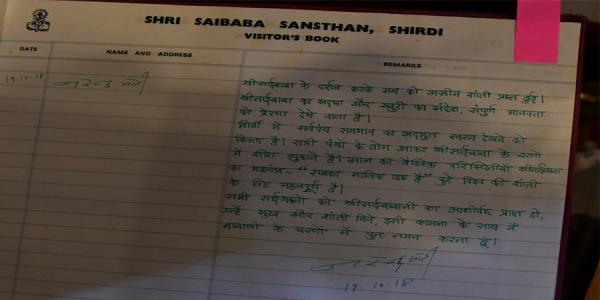 SHRI SAIBABA SANSTHAN, SHIRDI
VISITOR'S BOOK
DATE
NAME AND ADDRESS
REMARKS
19.10.18
नरेन्द्र मोदी
श्रीसाईबाबा के दर्शन करके मन को असीम शांती प्राप्त हुई।
श्रीसाईबाबा का श्रद्धा और सबुरी का संदेश, संपुर्ण मानवता
को प्रेरणा देने वाला है।
शिर्डी में सर्वपंथ समभाव का अद्भुत स्वरूप देखने को
मिलता है। सभी पंथो के लोग आकर श्रीसाईबाबा के चरणों
में शीश झुकाते है। आज की वैश्विक परिस्थितीयों में साईबाबा
का महामंत्र- "सबका मालिक एक है" पुरे विश्व की शांती
के लिए महत्वपूर्ण है।
सभी साईभक्तों को श्रीसाईबाबाजी का आशीर्वाद प्राप्त हो,
उन्हें सुख और शांती मिले, इसी कामना के साथ मैं
बाबाजी के चरणों में पुनः नमन करता हूं।
नरेन्द्र मोदी
19.10.18